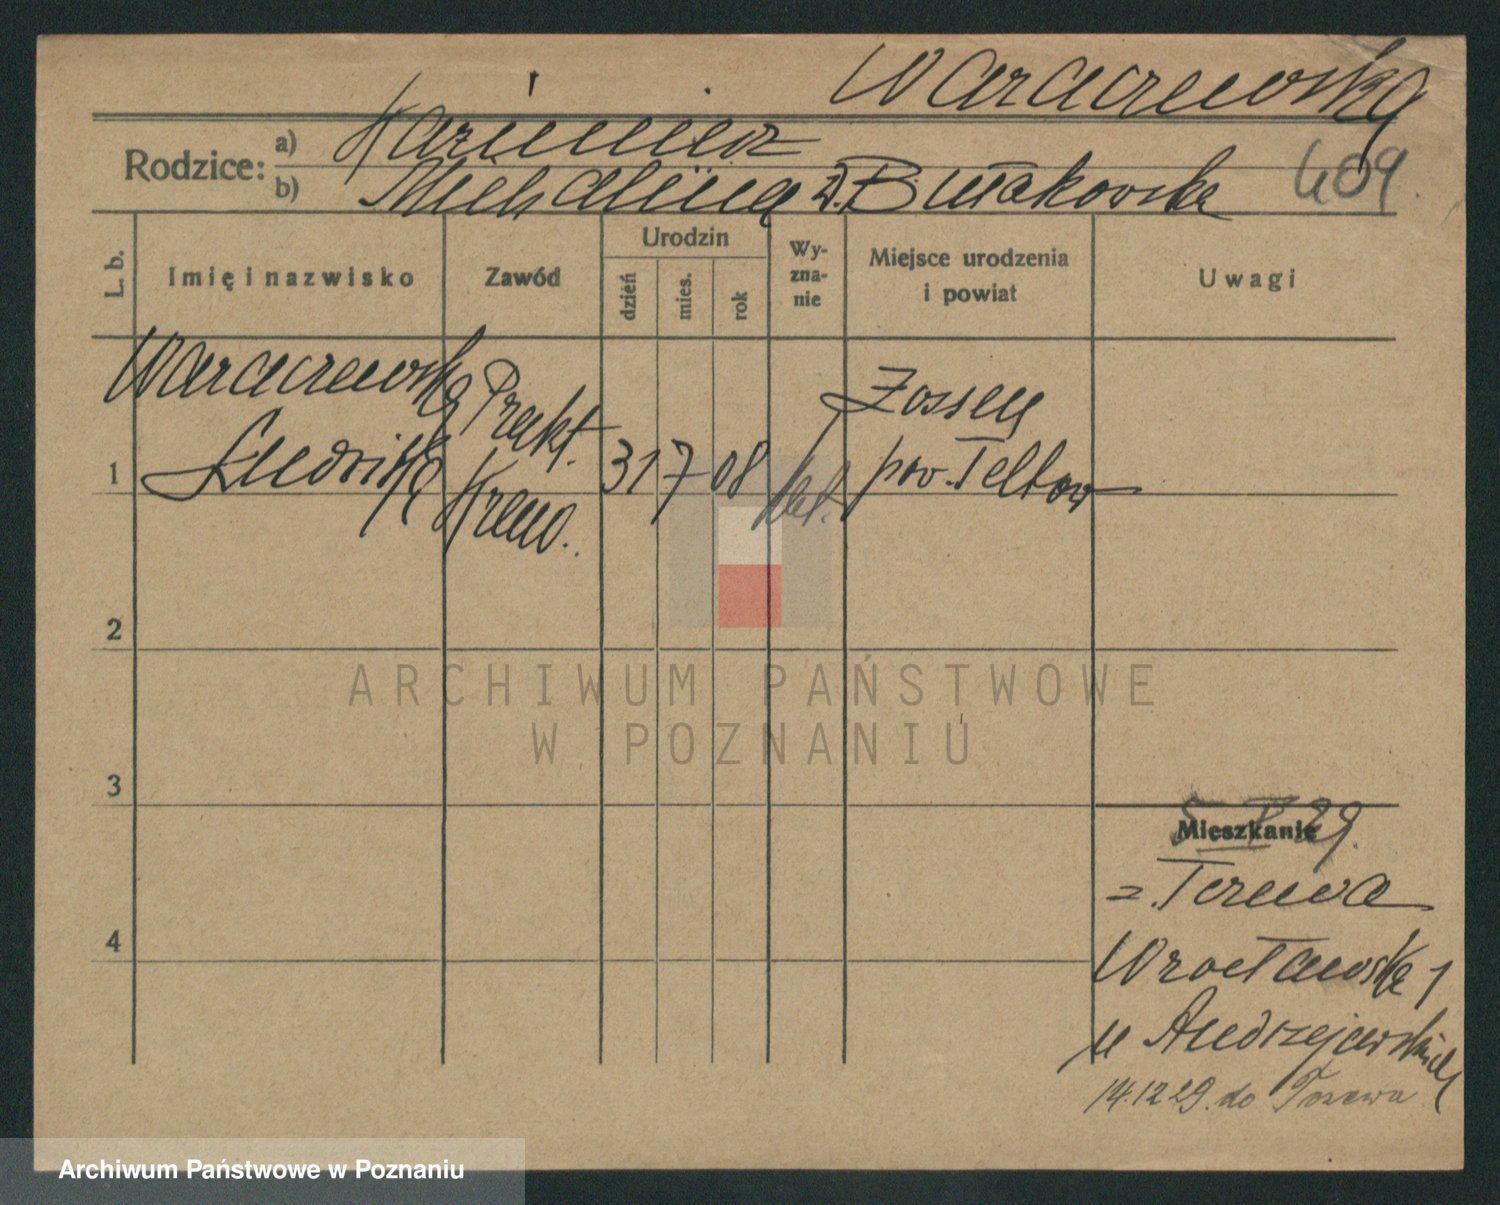 Waraczewska
Rodzice: a) Kazimierz
b) Michalina z. Bułakowska
409
L. b.
Imię i nazwisko
Zawód
Urodzin
dzień
mies.
rok
Wy-
zna-
nie
Miejsce urodzenia
i powiat
Uwagi
1
Waraczewska
Ludwika
Prakt.
31 7 08
kat.
Zossen
pow. Teltow
2
3
4
Mieszkanie
29.
z. Tczewa
Wrocławska 1
u Andrzejewskich
14.12 29. do Tczewa
ARCHIWUM PAŃSTWOWE
W POZNANIU
Archiwum Państwowe w Poznaniu